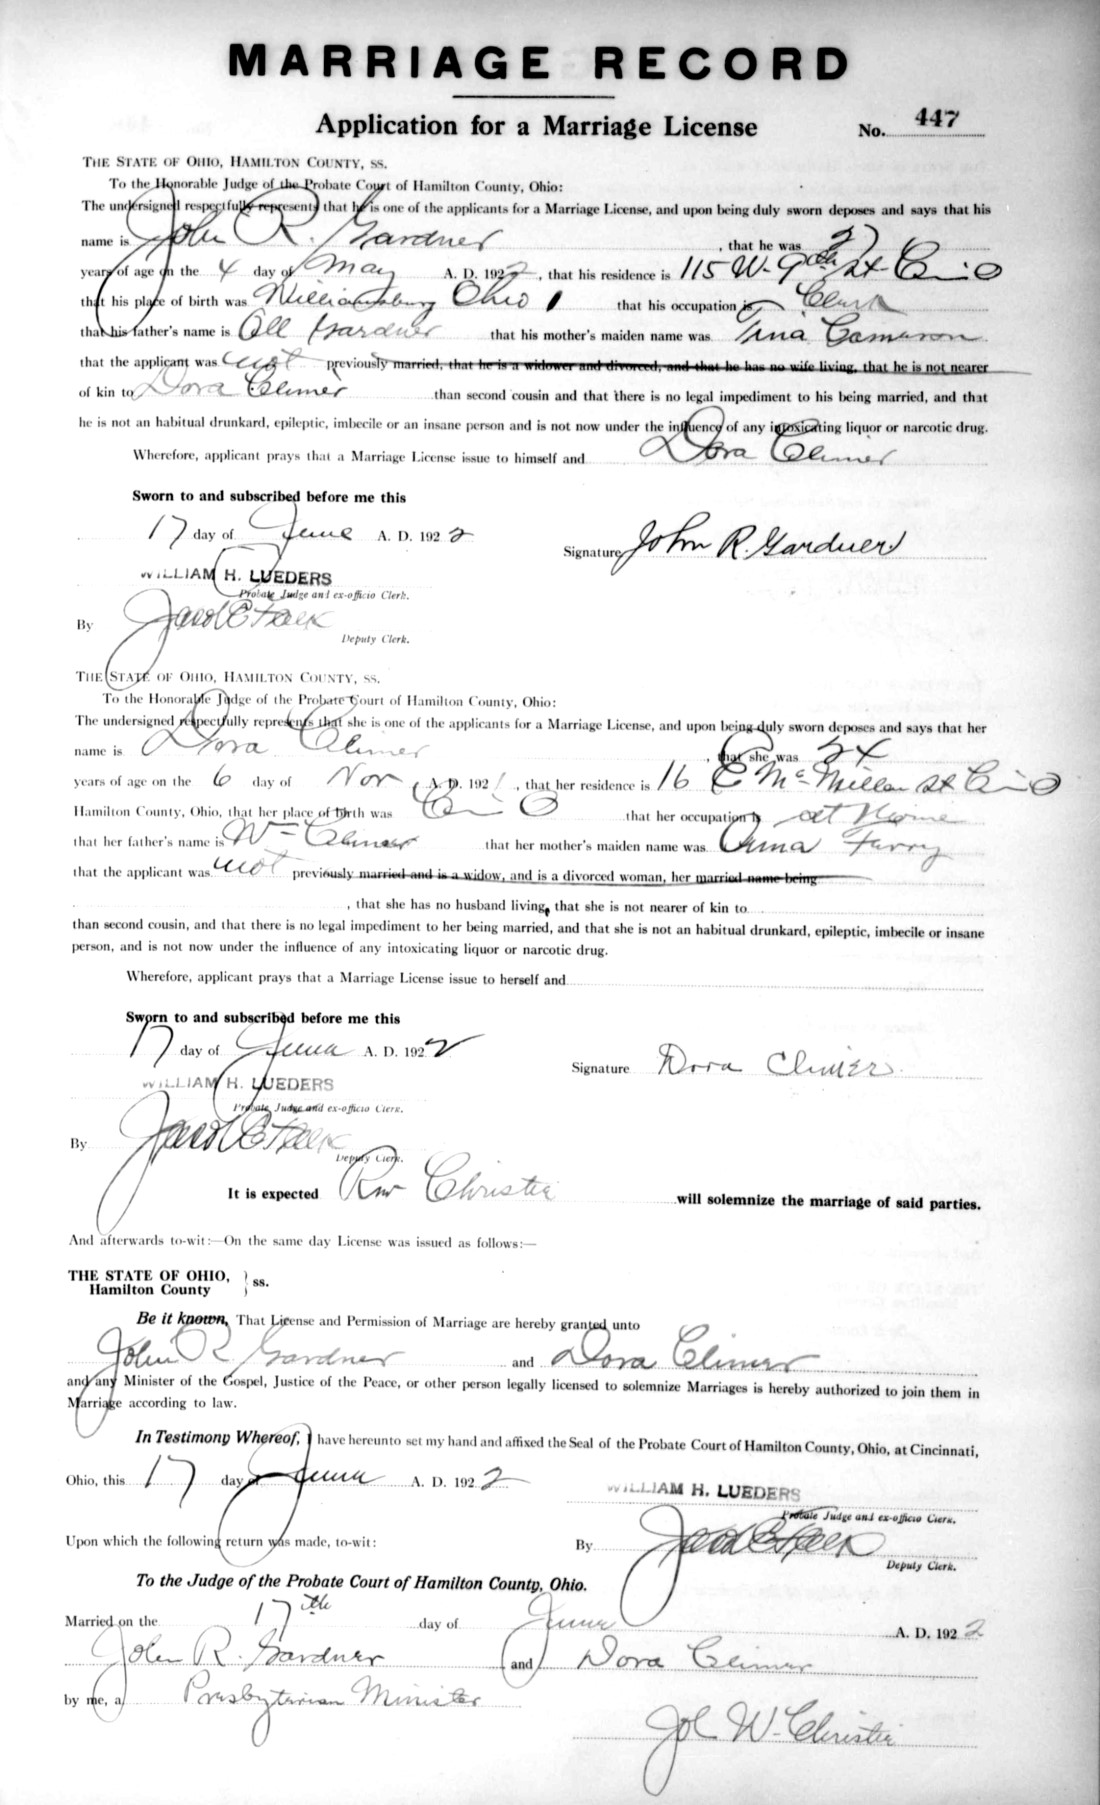 MARRIAGE RECORD
Application for a Marriage License No. 447
THE STATE OF OHIO, HAMILTON COUNTY, SS.
To the Honorable Judge of the Probate Court of Hamilton County, Ohio:
The undersigned respectfully represents that he is one of the applicants for a Marriage License, and upon being duly sworn deposes and says that his
name is John R. Gardner, that he was 27
years of age on the 4 day of May A. D. 1922, that his residence is 115 W. 9th St Cin O
that his place of birth was Williamsburg Ohio that his occupation is Clerk
that his father's name is Gardner that his mother's maiden name was Cameron
that the applicant was not previously married, that he is a widower and divorced, and that he has no wife living, that he is not nearer
of kin to Dora Climer than second cousin and that there is no legal impediment to his being married, and that
he is not an habitual drunkard, epileptic, imbecile or an insane person and is not now under the influence of any intoxicating liquor or narcotic drug.
Wherefore, applicant prays that a Marriage License issue to himself and Dora Climer
Sworn to and subscribed before me this
17 day of June A. D. 1922
Signature John R. Gardner
WILLIAM H. LUEDERS
Probate Judge and ex-officio Clerk.
By
Deputy Clerk.
THE STATE OF OHIO, HAMILTON COUNTY, SS.
To the Honorable Judge of the Probate Court of Hamilton County, Ohio:
The undersigned respectfully represents that she is one of the applicants for a Marriage License, and upon being duly sworn deposes and says that her
name is Dora Climer, that she was 24
years of age on the 6 day of Nov, A. D. 1921, that her residence is 16 E McMillan St Cin O
Hamilton County, Ohio, that her place of birth was Cin O that her occupation is at Home
that her father's name is Wm Climer that her mother's maiden name was Anna
that the applicant was not previously married and is a widow, and is a divorced woman, her married name being
, that she has no husband living, that she is not nearer of kin to
than second cousin, and that there is no legal impediment to her being married, and that she is not an habitual drunkard, epileptic, imbecile or insane
person, and is not now under the influence of any intoxicating liquor or narcotic drug.
Wherefore, applicant prays that a Marriage License issue to herself and
Sworn to and subscribed before me this
17 day of June A. D. 1922
Signature Dora Climer
WILLIAM H. LUEDERS
Probate Judge and ex-officio Clerk.
By
Deputy Clerk.
It is expected Rev Christie will solemnize the marriage of said parties.
And afterwards to-wit:—On the same day License was issued as follows:—
THE STATE OF OHIO, } ss.
Hamilton County
Be it known, That License and Permission of Marriage are hereby granted unto
John R Gardner and Dora Climer
and any Minister of the Gospel, Justice of the Peace, or other person legally licensed to solemnize Marriages is hereby authorized to join them in
Marriage according to law.
In Testimony Whereof, I have hereunto set my hand and affixed the Seal of the Probate Court of Hamilton County, Ohio, at Cincinnati,
Ohio, this 17 day of June A. D. 1922
WILLIAM H. LUEDERS
Probate Judge and ex-officio Clerk.
Upon which the following return was made, to-wit:
By
Deputy Clerk.
To the Judge of the Probate Court of Hamilton County, Ohio.
Married on the 17th day of June A. D. 1922
John R. Gardner and Dora Climer
by me, a Presbyterian Minister
W. Christie